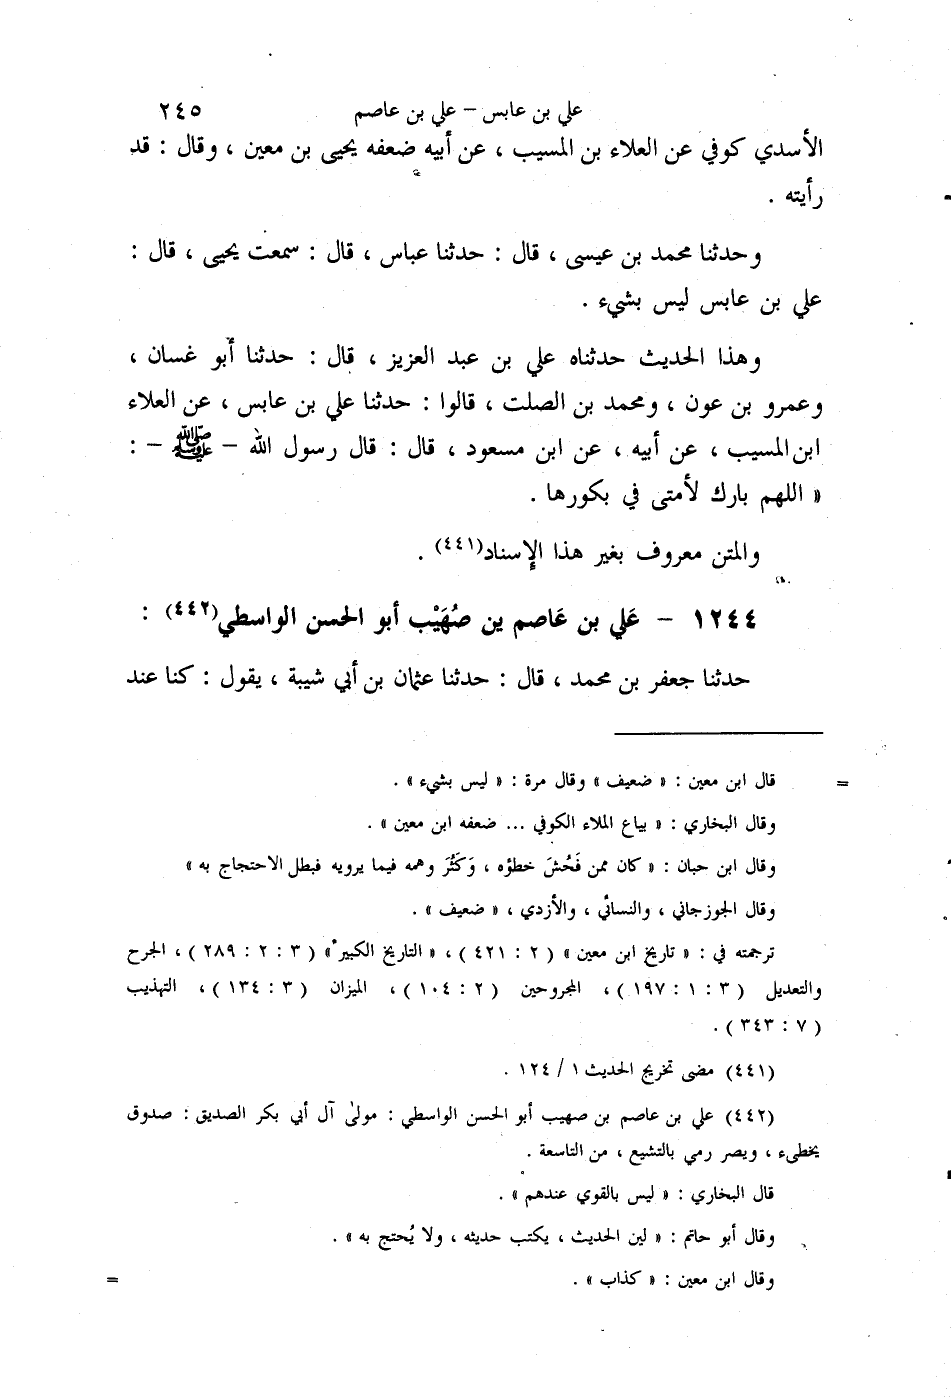 علي بن عابس – علي بن عاصم ٢٤٥
الأسدي كوفي عن العلاء بن المسيب ، عن أبيه ضعفه يحيى بن معين ، وقال : قد
رأيته .
وحدثنا محمد بن عيسى ، قال : حدثنا عباس ، قال : سمعت يحيى ، قال :
علي بن عابس ليس بشيء .
وهذا الحديث حدثناه علي بن عبد العزيز ، قال : حدثنا أبو غسان ،
وعمرو بن عون ، ومحمد بن الصلت ، قالوا : حدثنا علي بن عابس ، عن العلاء
ابن المسيب ، عن أبيه ، عن ابن مسعود ، قال : قال رسول الله – ﷺ – :
« اللهم بارك لأمتى في بكورها .
والمتن معروف بغير هذا الإسناد(٤٤١) .
١٢٤٤ – عَلي بن عَاصم ين صُهَيْب أبو الحسن الواسطي(٤٤٢) :
حدثنا جعفر بن محمد ، قال : حدثنا عثمان بن أبي شيبة ، يقول : كنا عند
= قال ابن معين : « ضعيف » وقال مرة : « ليس بشيء » .
وقال البخاري : « بياع الملاء الكوفي ... ضعفه ابن معين » .
وقال ابن حبان : « كان ممن فَحُشَ خطؤه ، وَكَثُرَ وهمه فيما يرويه فبطل الاحتجاج به »
وقال الجوزجاني ، والنسائي ، والأزدي ، « ضعيف » .
ترجمته في : « تاريخ ابن معين » ( ٢ : ٤٢١ ) ، « التاريخ الكبير » ( ٣ : ٢ : ٢٨٩ ) ، الجرح
والتعديل ( ٣ : ١ : ١٩٧ ) ، المجروحين ( ٢ : ١٠٤ ) ، الميزان ( ٣ : ١٣٤ ) ، التهذيب
( ٧ : ٣٤٣ ) .
(٤٤١) مضى تخريج الحديث ١ / ١٢٤ .
(٤٤٢) علي بن عاصم بن صهيب أبو الحسن الواسطي : مولىٰ آل أبي بكر الصديق : صدوق
يخطىء ، ويصر رمي بالتشيع ، من التاسعة .
قال البخاري : « ليس بالقوي عندهم » .
وقال أبو حاتم : « لين الحديث ، يكتب حديثه ، ولا يُحتج به » .
وقال ابن معين : « كذاب » . =